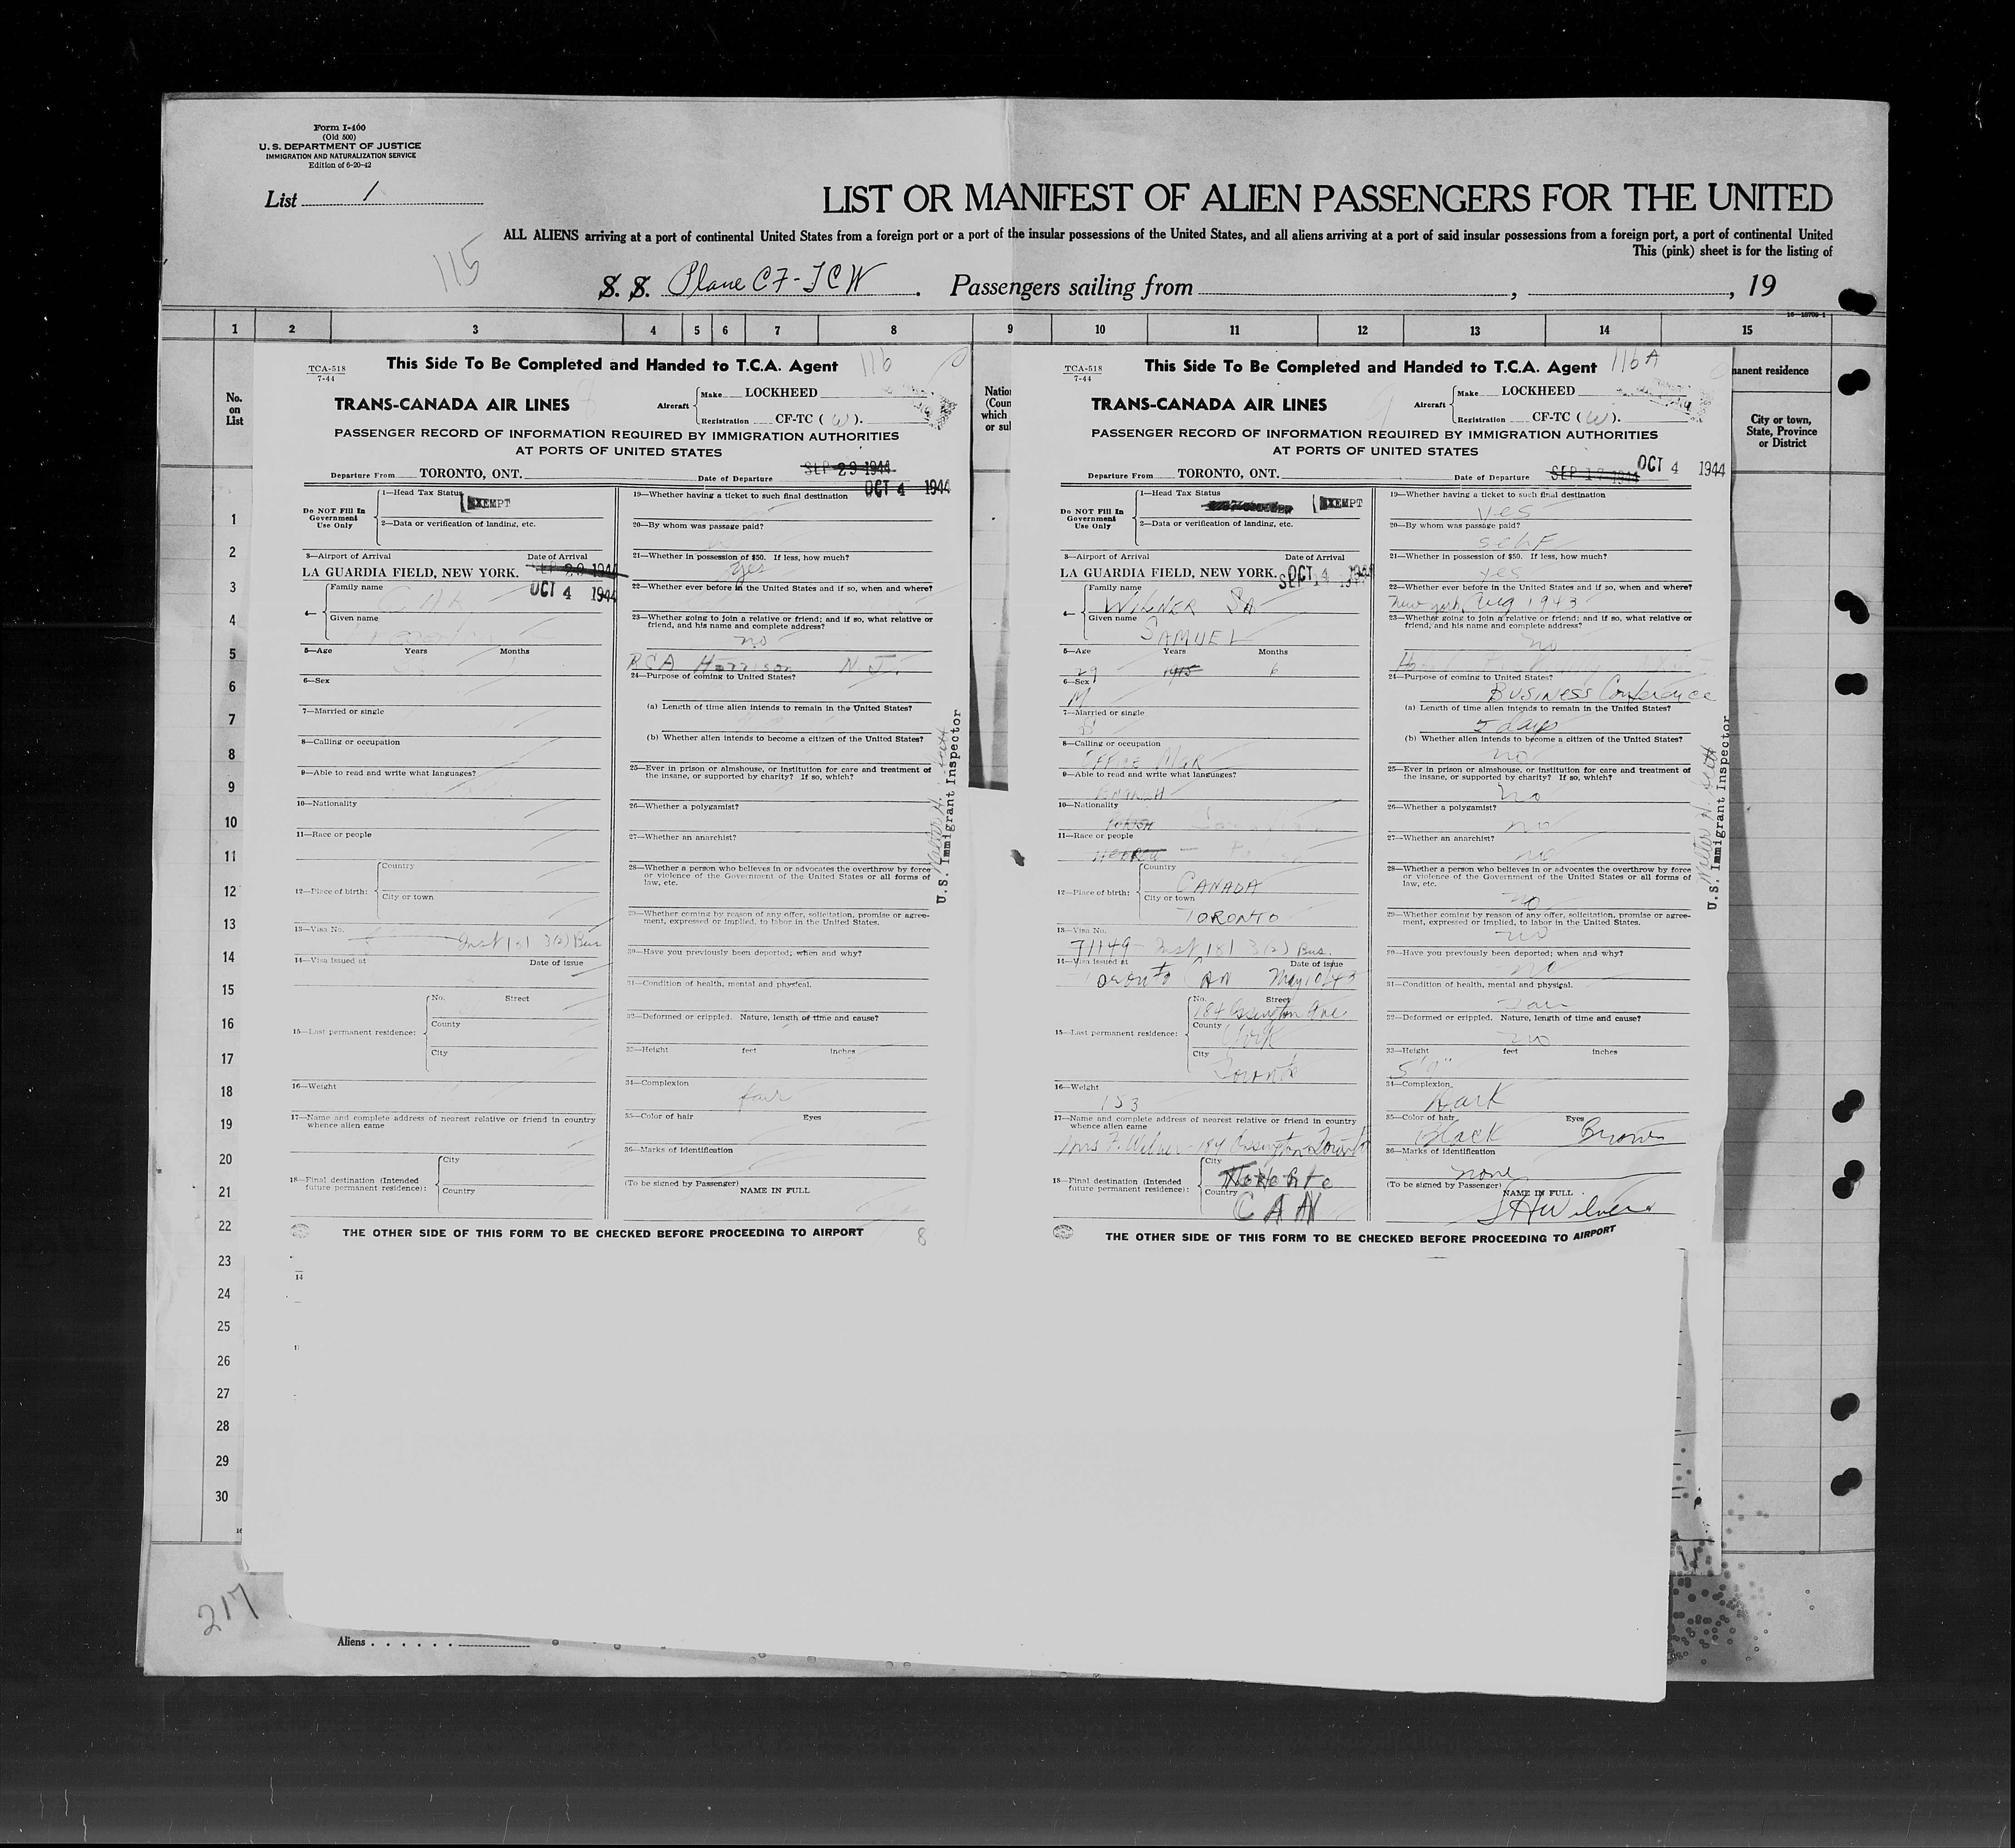 Form I-400
(Old 500)
U. S. DEPARTMENT OF JUSTICE
IMMIGRATION AND NATURALIZATION SERVICE
Edition of 6-20-42
List 1
LIST OR MANIFEST OF ALIEN PASSENGERS FOR THE UNITED
ALL ALIENS arriving at a port of continental United States from a foreign port or a port of the insular possessions of the United States, and all aliens arriving at a port of said insular possessions from a foreign port, a port of continental United
This (pink) sheet is for the listing of
115
S. S. Plane CF-TCW. Passengers sailing from , , 19
1 2 3 4 5 6 7 8 9 10 11 12 13 14 15
No.
on
List
1
2
3
4
5
6
7
8
9
10
11
12
13
14
15
16
17
18
19
20
21
22
23
24
25
26
27
28
29
30
This Side To Be Completed and Handed to T.C.A. Agent 116
TCA-518
7-44
TRANS-CANADA AIR LINES
Aircraft
Make LOCKHEED
Registration CF-TC (W).
PASSENGER RECORD OF INFORMATION REQUIRED BY IMMIGRATION AUTHORITIES
AT PORTS OF UNITED STATES
Departure From TORONTO, ONT. Date of Departure SEP 29 1944
OCT 4 1944
Do NOT Fill In
Government
Use Only
1—Head Tax Status EXEMPT
2—Data or verification of landing, etc.
3—Airport of Arrival Date of Arrival
LA GUARDIA FIELD, NEW YORK.
OCT 4 1944
4—
Family name
Given name
5—Age Years Months
6—Sex
7—Married or single
8—Calling or occupation
9—Able to read and write what languages?
10—Nationality
11—Race or people
12—Place of birth:
Country
City or town
13—Visa No.
Inst 181 3(2) Bus
14—Visa issued at Date of issue
15—Last permanent residence:
No. Street
County
City
16—Weight
17—Name and complete address of nearest relative or friend in country
whence alien came
18—Final destination (Intended
future permanent residence):
City
Country
19—Whether having a ticket to such final destination
20—By whom was passage paid?
21—Whether in possession of $50. If less, how much?
Yes
22—Whether ever before in the United States and if so, when and where?
23—Whether going to join a relative or friend; and if so, what relative or
friend, and his name and complete address?
no
RCA Harrison N J.
24—Purpose of coming to United States?
(a) Length of time alien intends to remain in the United States?
(b) Whether alien intends to become a citizen of the United States?
25—Ever in prison or almshouse, or institution for care and treatment of
the insane, or supported by charity? If so, which?
26—Whether a polygamist?
27—Whether an anarchist?
28—Whether a person who believes in or advocates the overthrow by force
or violence of the Government of the United States or all forms of
law, etc.
29—Whether coming by reason of any offer, solicitation, promise or agree-
ment, expressed or implied, to labor in the United States.
30—Have you previously been deported; when and why?
31—Condition of health, mental and physical.
32—Deformed or crippled. Nature, length of time and cause?
33—Height feet inches
34—Complexion
fair
35—Color of hair Eyes
36—Marks of identification
(To be signed by Passenger)
NAME IN FULL
U.S. Immigrant Inspector
THE OTHER SIDE OF THIS FORM TO BE CHECKED BEFORE PROCEEDING TO AIRPORT
8
This Side To Be Completed and Handed to T.C.A. Agent 116 A
TCA-518
7-44
TRANS-CANADA AIR LINES
Aircraft
Make LOCKHEED
Registration CF-TC (W).
PASSENGER RECORD OF INFORMATION REQUIRED BY IMMIGRATION AUTHORITIES
AT PORTS OF UNITED STATES
Departure From TORONTO, ONT. Date of Departure SEP 17 1944 OCT 4 1944
Do NOT Fill In
Government
Use Only
1—Head Tax Status EXEMPT
2—Data or verification of landing, etc.
3—Airport of Arrival Date of Arrival
LA GUARDIA FIELD, NEW YORK. OCT 4 1944
4—
Family name
WILNER
Given name
SAMUEL
5—Age Years Months
29 1915 6
6—Sex
M
7—Married or single
S
8—Calling or occupation
OFFICE MGR
9—Able to read and write what languages?
ENGLISH
10—Nationality
11—Race or people
HEBREW
12—Place of birth:
Country
CANADA
City or town
TORONTO
13—Visa No.
71149 Inst 181 3(2) Bus.
14—Visa issued at Date of issue
Toronto CAN May 10/43
15—Last permanent residence:
No. Street
184 Ossington Ave
County
York
City
Toronto
16—Weight
153
17—Name and complete address of nearest relative or friend in country
whence alien came
Mrs F. Wilner - 184 Ossington Toronto
18—Final destination (Intended
future permanent residence):
City
Country
CAN
19—Whether having a ticket to such final destination
yes
20—By whom was passage paid?
self
21—Whether in possession of $50. If less, how much?
yes
22—Whether ever before in the United States and if so, when and where?
New York Aug 1943
23—Whether going to join a relative or friend; and if so, what relative or
friend, and his name and complete address?
no
24—Purpose of coming to United States?
BUSINESS Conference
(a) Length of time alien intends to remain in the United States?
5 days
(b) Whether alien intends to become a citizen of the United States?
no
25—Ever in prison or almshouse, or institution for care and treatment of
the insane, or supported by charity? If so, which?
no
26—Whether a polygamist?
no
27—Whether an anarchist?
no
28—Whether a person who believes in or advocates the overthrow by force
or violence of the Government of the United States or all forms of
law, etc.
no
29—Whether coming by reason of any offer, solicitation, promise or agree-
ment, expressed or implied, to labor in the United States.
no
30—Have you previously been deported; when and why?
no
31—Condition of health, mental and physical.
32—Deformed or crippled. Nature, length of time and cause?
no
33—Height feet inches
34—Complexion
Dark
35—Color of hair Eyes
Black Brown
36—Marks of identification
none
(To be signed by Passenger)
NAME IN FULL
SHWilner
U.S. Immigrant Inspector
THE OTHER SIDE OF THIS FORM TO BE CHECKED BEFORE PROCEEDING TO AIRPORT
anent residence
City or town,
State, Province
or District
217
Aliens